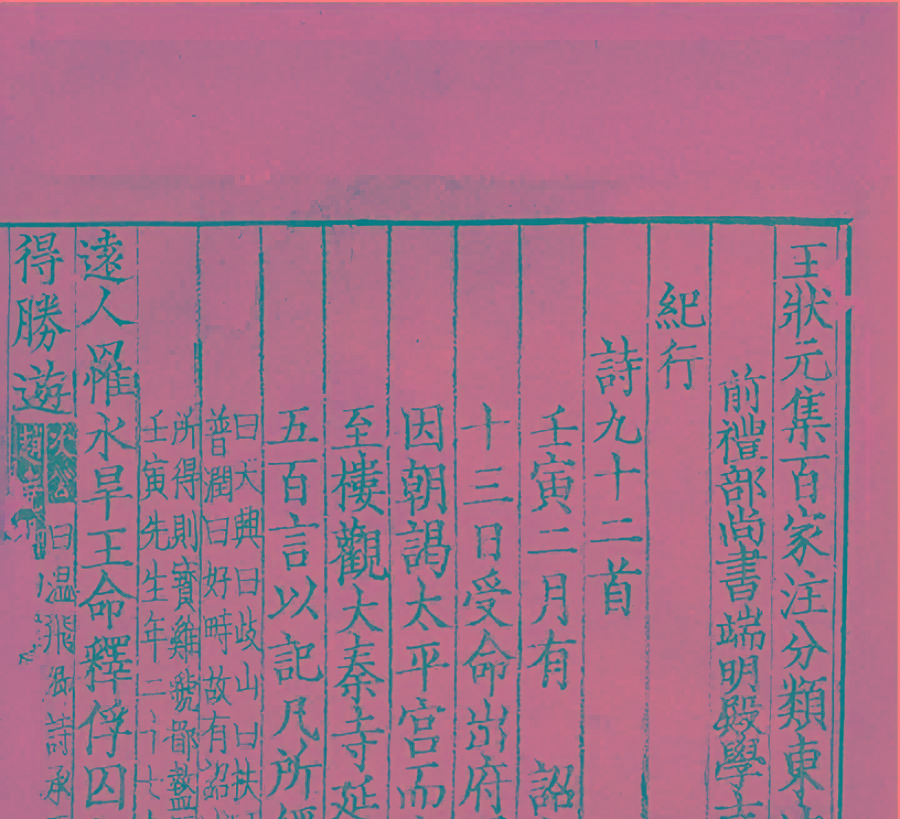 王狀元集百家注分類東
前禮部尚書端明殿學士
紀行
詩九十二首
壬寅二月有 詔
十三日受命出府
因朝謁太平宮而
至樓觀大秦寺延
五百言以記凡所經
曰天興曰岐山曰扶
普潤曰好畤故有詔
所得則寶雞虢郿盩
壬寅先生年二十七
遠人罹水旱王命釋俘囚
得勝遊
曰溫飛卿詩承